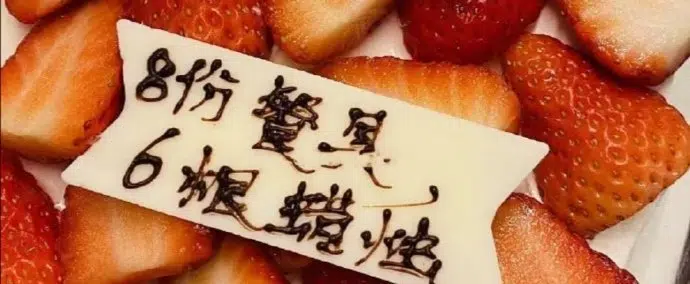 8份餐具
6根蜡烛